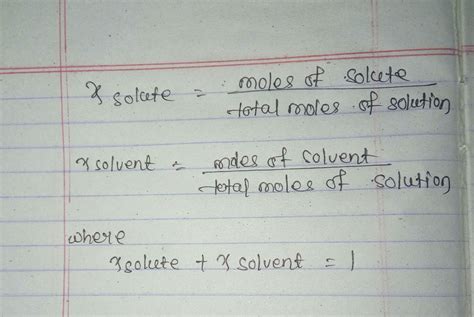 x solute = moles of solute / total moles of solution
x solvent = moles of solvent / total moles of solution
where
x solute + x solvent = 1